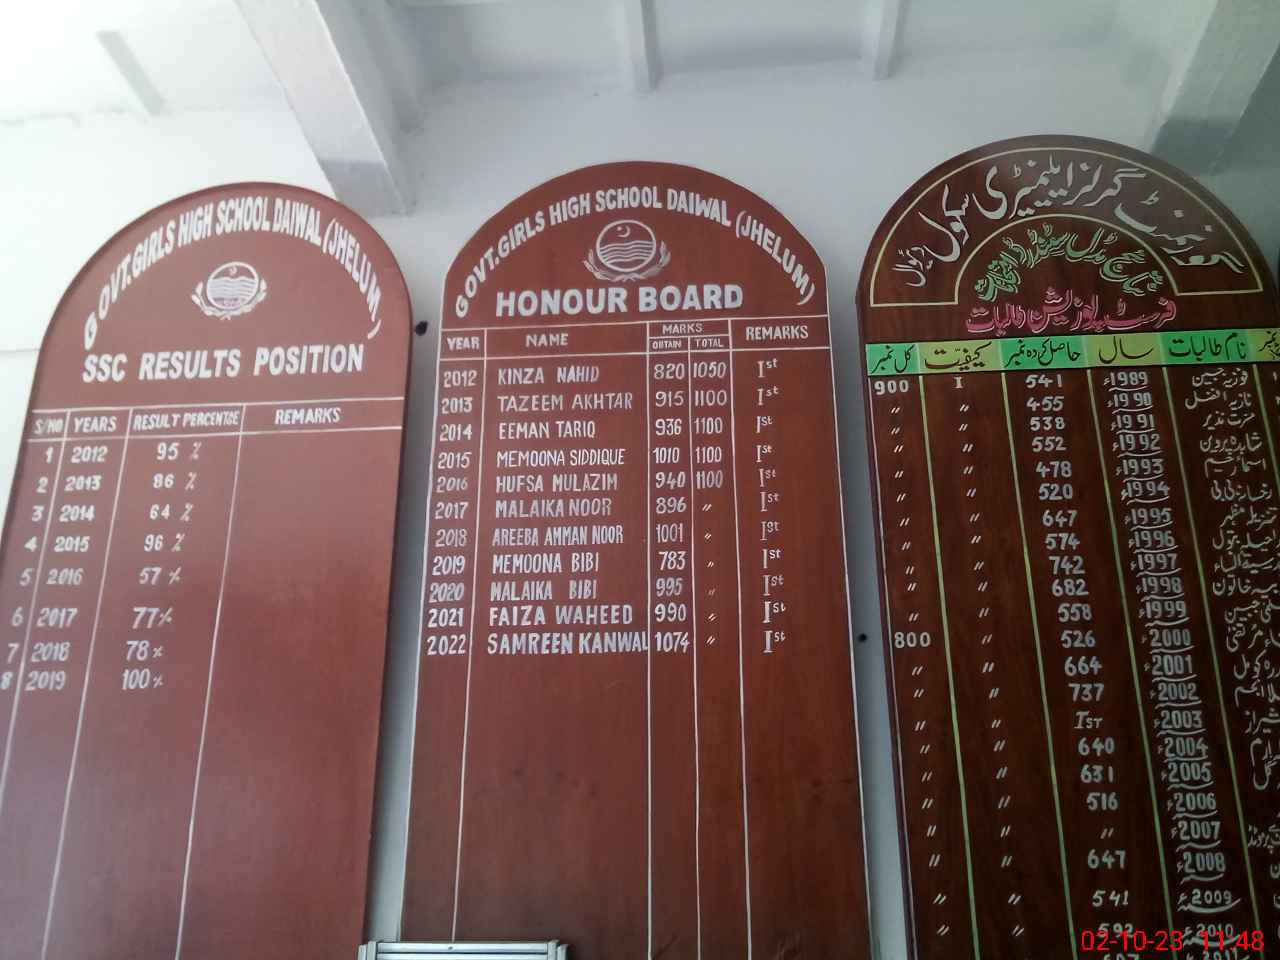 GOVT. GIRLS HIGH SCHOOL DAIWAL (JHELUM)
SSC RESULTS POSITION
S/NO YEARS RESULT PERCENTAGE REMARKS
1 2012 95 %
2 2013 86 %
3 2014 64 %
4 2015 96 %
5 2016 57 %
6 2017 77 %
7 2018 78 %
8 2019 100 %
GOVT. GIRLS HIGH SCHOOL DAIWAL (JHELUM)
HONOUR BOARD
YEAR NAME MARKS REMARKS
OBTAIN TOTAL
2012 KINZA NAHID 820 1050 Ist
2013 TAZEEM AKHTAR 915 1100 Ist
2014 EEMAN TARIQ 936 1100 Ist
2015 MEMOONA SIDDIQUE 1010 1100 Ist
2016 HUFSA MULAZIM 940 1100 Ist
2017 MALAIKA NOOR 896 " Ist
2018 AREEBA AMMAN NOOR 1001 " Ist
2019 MEMOONA BIBI 783 " Ist
2020 MALAIKA BIBI 995 " Ist
2021 FAIZA WAHEED 990 " Ist
2022 SAMREEN KANWAL 1074 " Ist
گورنمنٹ گرلز ایلیمنٹری سکول دیوال
مڈل سٹینڈرڈ
فرسٹ پوزیشن طالبات
نام طالبات سال حاصل کردہ نمبر کیفیت کل نمبر
فوزیہ جبین 1989ء 541 I 900
نازیہ افضل 1990ء 455 " "
1991ء 538 " "
شاہدہ پروین 1992ء 552 " "
1993ء 478 " "
1994ء 520 " "
1995ء 647 " "
1996ء 574 " "
1997ء 742 " "
خاتون 1998ء 682 " "
جبین 1999ء 558 " "
2000ء 526 " 800
2001ء 664 " "
2002ء 737 " "
2003ء IST " "
2004ء 640 " "
2005ء 631 " "
2006ء 516 " "
2007ء " " "
2008ء 647 " "
2009ء 541 " "
2010ء 592 " "
02-10-23 11:48